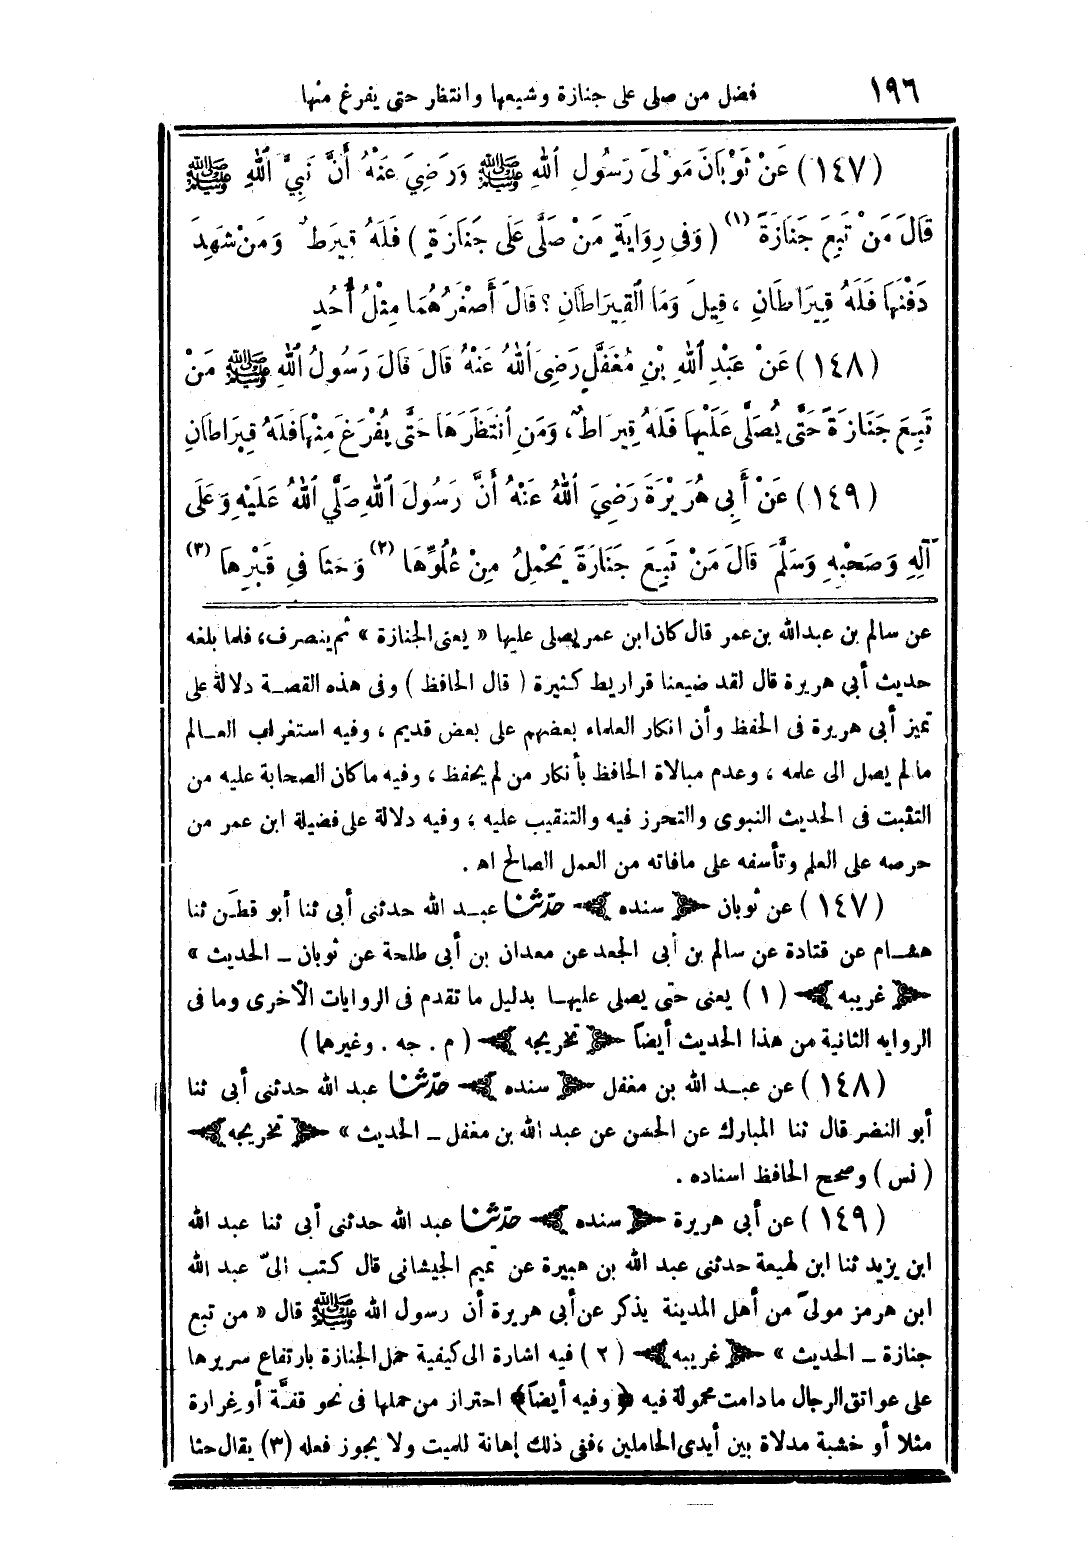 ١٩٦ فضل من صلى على جنازة وشيعها وانتظار حتى يفرغ منها
(١٤٧) عَنْ ثَوْبَانَ مَوْلَى رَسُولِ اللهِ ﷺ وَرَضِيَ عَنْهُ أَنَّ نَبِيَّ اللهِ ﷺ
قَالَ مَنْ تَبِعَ جَنَازَةً (١) (وَفِي رِوَايَةٍ مَنْ صَلَّى عَلَى جَنَازَةٍ) فَلَهُ قِيرَاطٌ وَمَنْ شَهِدَ
دَفْنَهَا فَلَهُ قِيرَاطَانِ ، قِيلَ وَمَا الْقِيرَاطَانِ ؟ قَالَ أَصْغَرُهُمَا مِثْلُ أُحُدٍ
(١٤٨) عَنْ عَبْدِ اللهِ بْنِ مُغَفَّلٍ رَضِيَ اللهُ عَنْهُ قَالَ قَالَ رَسُولُ اللهِ ﷺ مَنْ
تَبِعَ جَنَازَةً حَتَّى يُصَلَّى عَلَيْهَا فَلَهُ قِيرَاطٌ، وَمَنِ انْتَظَرَهَا حَتَّى يُفْرَغَ مِنْهَا فَلَهُ قِيرَاطَانِ
(١٤٩) عَنْ أَبِي هُرَيْرَةَ رَضِيَ اللهُ عَنْهُ أَنَّ رَسُولَ اللهِ صَلَّي اللهُ عَلَيْهِ وَعَلَى
آلِهِ وَصَحْبِهِ وَسَلَّمَ قَالَ مَنْ تَبِعَ جَنَازَةً يَحْمِلُ مِنْ عُلُوِّهَا (٢) وَحَثَا فِي قَبْرِهَا (٣)
عن سالم بن عبدالله بن عمر قال كان ابن عمر يصلى عليها « يعنى الجنازة » ثم ينصرف، فلما بلغه
حديث أبي هريرة قال لقد ضيعنا قراريط كثيرة ( قال الحافظ ) وفى هذه القصة دلالة على
تميز أبي هريرة فى الحفظ وأن انكار العلماء بعضهم على بعض قديم ، وفيه استغراب العالم
مالم يصل الى علمه ، وعدم مبالاة الحافظ بأنكار من لم يحفظ ، وفيه ما كان الصحابة عليه من
التثبت فى الحديث النبوى والتحرز فيه والتنقيب عليه ، وفيه دلالة على فضيلة ابن عمر من
حرصه على العلم وتأسفه على مافاته من العمل الصالح اه .
(١٤٧) عن ثوبان ﴿ سنده ﴾ حدّثنا عبد الله حدثنى أبي ثنا أبو قطن ثنا
هشام عن قتادة عن سالم بن أبى الجعد عن معدان بن أبي طلحة عن ثوبان ـ الحديث »
﴿ غريبه ﴾ (١) يعنى حتى يصلى عليها بدليل ما تقدم فى الروايات الأخرى وما فى
الروايه الثانية من هذا الحديث أيضاً ﴿ تخريجه ﴾ ( م . جه . وغيرهما )
(١٤٨) عن عبد الله بن مغفل ﴿ سنده ﴾ حدّثنا عبد الله حدثنى أبي ثنا
أبو النضر قال ثنا المبارك عن الحسن عن عبد الله بن مغفل ـ الحديث » ﴿ تخريجه ﴾
( نس ) وصحح الحافظ اسناده .
(١٤٩) عن أبي هريرة ﴿ سنده ﴾ حدّثنا عبد الله حدثنى أبى ثنا عبد الله
ابن يزيد ثنا ابن لهيعة حدثنى عبد الله بن هبيرة عن تميم الجيشانى قال كتب الىّ عبد الله
ابن هرمز مولىً من أهل المدينة يذكر عن أبي هريرة أن رسول الله ﷺ قال « من تبع
جنازة ـ الحديث » ﴿ غريبه ﴾ (٢) فيه اشارة الى كيفية حمل الجنازة بارتفاع سريرها
على عواتق الرجال مادامت محمولة فيه ﴿ وفيه أيضاً ﴾ احتراز من حملها فى نحو قفَّة أو غِرارة
مثلا أو خشبة مدلاة بين أيدى الحاملين ، ففى ذلك إهانة للميت ولا يجوز فعله (٣) يقال حثا